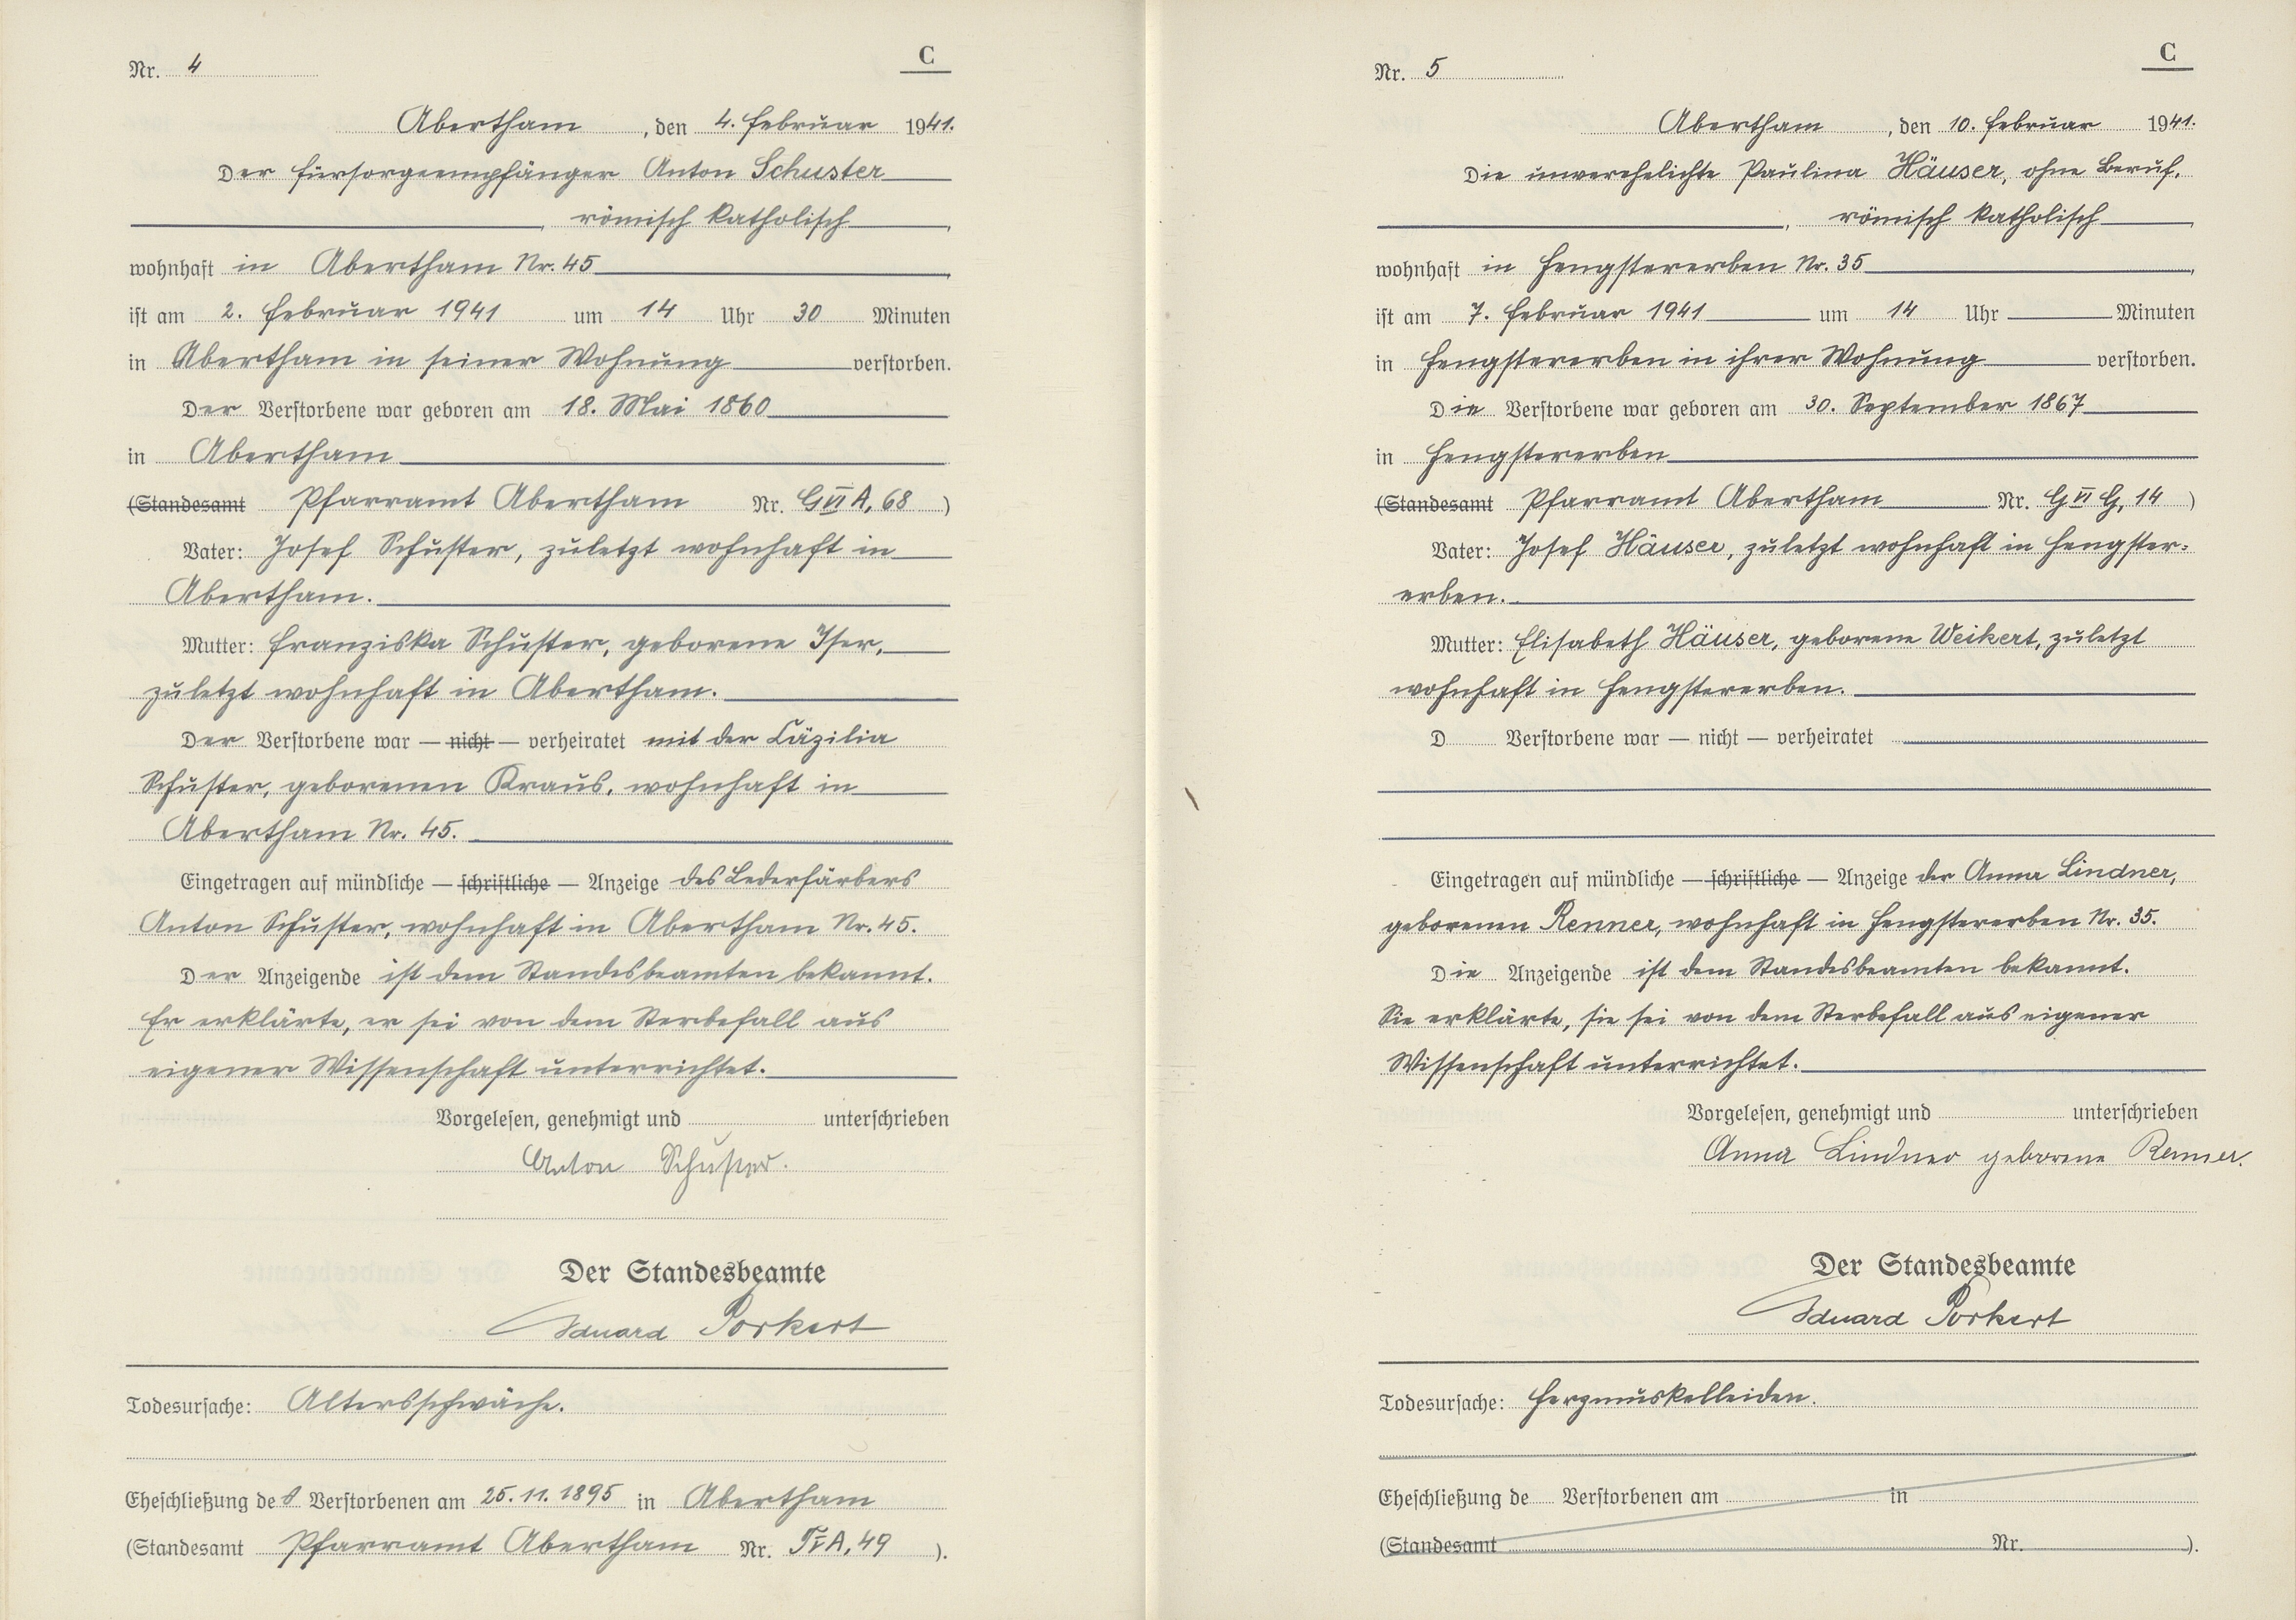 Nr. 4
C
Abertham, den 4. Februar 1941.
Der Fürsorgeempfänger Anton Schuster
, römisch katholisch,
wohnhaft in Abertham Nr. 45,
ist am 2. Februar 1941 um 14 Uhr 30 Minuten
in Abertham in seiner Wohnung verstorben.
Der Verstorbene war geboren am 18. Mai 1860
in Abertham
(Standesamt Pfarramt Abertham Nr. G VI A, 68)
Vater: Josef Schuster, zuletzt wohnhaft in
Abertham.
Mutter: Franziska Schuster, geborene Iser,
zuletzt wohnhaft in Abertham.
Der Verstorbene war — nicht — verheiratet mit der Cäzilia
Schuster, geborenen Kraus, wohnhaft in
Abertham Nr. 45.
Eingetragen auf mündliche — schriftliche — Anzeige des Lederfärbers
Anton Schuster, wohnhaft in Abertham Nr. 45.
Der Anzeigende ist dem Standesbeamten bekannt.
Er erklärte, er sei von dem Sterbefall aus
eigener Wissenschaft unterrichtet.
Vorgelesen, genehmigt und unterschrieben
Anton Schuster.
Der Standesbeamte
Eduard Porkert
Todesursache: Altersschwäche.
Eheschließung des Verstorbenen am 25.11.1895 in Abertham
(Standesamt Pfarramt Abertham Nr. T V A, 49).
Nr. 5
C
Abertham, den 10. Februar 1941.
Die unverehelichte Paulina Häuser, ohne Beruf,
, römisch katholisch,
wohnhaft in Hengstererben Nr. 35,
ist am 7. Februar 1941 um 14 Uhr Minuten
in Hengstererben in ihrer Wohnung verstorben.
Die Verstorbene war geboren am 30. September 1867
in Hengstererben
(Standesamt Pfarramt Abertham Nr. G VI G, 14)
Vater: Josef Häuser, zuletzt wohnhaft in Hengster-
erben.
Mutter: Elisabeth Häuser, geborene Weikert, zuletzt
wohnhaft in Hengstererben.
D Verstorbene war — nicht — verheiratet
Eingetragen auf mündliche — schriftliche — Anzeige der Anna Lindner,
geborenen Renner, wohnhaft in Hengstererben Nr. 35.
Die Anzeigende ist dem Standesbeamten bekannt.
Sie erklärte, sie sei von dem Sterbefall aus eigener
Wissenschaft unterrichtet.
Vorgelesen, genehmigt und unterschrieben
Anna Lindner geborene Renner.
Der Standesbeamte
Eduard Porkert
Todesursache: Herzmuskelleiden.
Eheschließung de Verstorbenen am in
(Standesamt Nr. ).